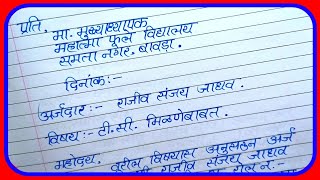 प्रति,
मा. मुख्याध्यापक
महात्मा फूले विद्यालय
समता नगर. बावडा.
दिनांक:-
अर्जदार:- राजीव संजय जाधव.
विषय:- टी.सी. मिळणेबाबत.
महोदय, वरील विषयास अनुसरून अर्ज
राजीव संजय जाधव